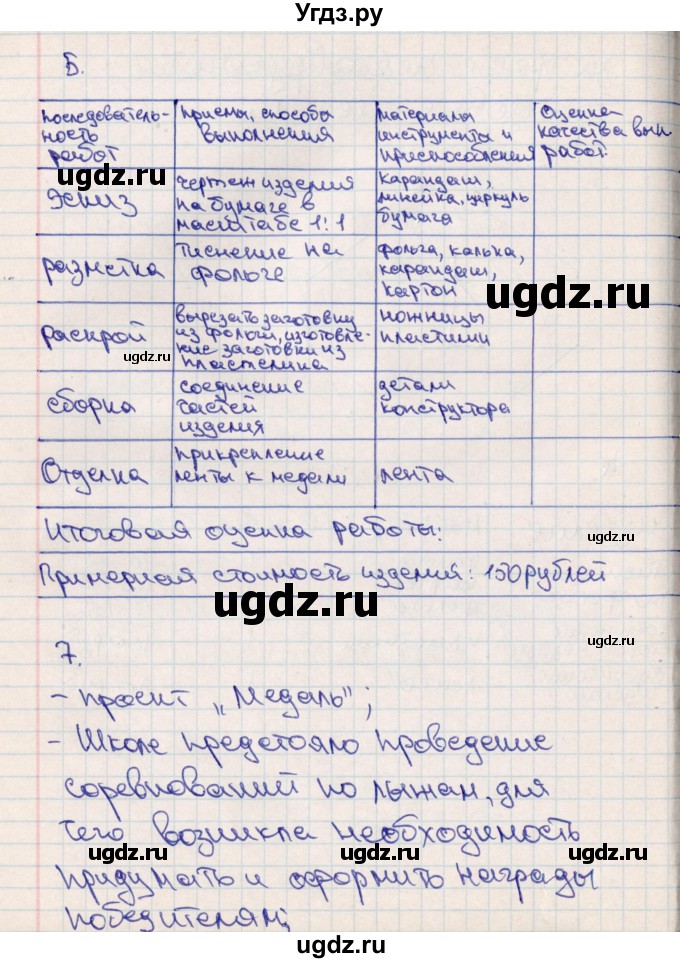 Угдз.ру
5.
последователь-
ность
работ
приемы, способы
выполнения
материалы
инструменты и
приспособления
Оценка
качества вып.
работ.
ugdz.ru
эскиз
чертеж изделия
на бумаге в
масштабе 1:1
карандаш,
линейка, циркуль
бумага
ugdz.ru
разметка
тиснение на
фольге
фольга, калька,
карандаш,
картон
ugdz.ru
раскрой
вырезать заготовку
из фольги, изготовле-
ние заготовки из
пластелина
ножницы
пластилин
ugdz.ru
сборка
соединение
частей
изделия
детали
конструктора
ugdz.ru
Отделка
прикрепление
ленты к медали
лента
Итоговая оценка работы:
ugdz.ru
Примерная стоимость изделия: 150 рублей
ugdz.ru
ugdz.ru
7.
- проект „Медаль";
- Школе предстояло проведение
соревнований по лыжам, для
чего возникла необходимость
ugdz.ru
ugdz.ru
придумать и оформить награды
победителям;
ugdz.ru